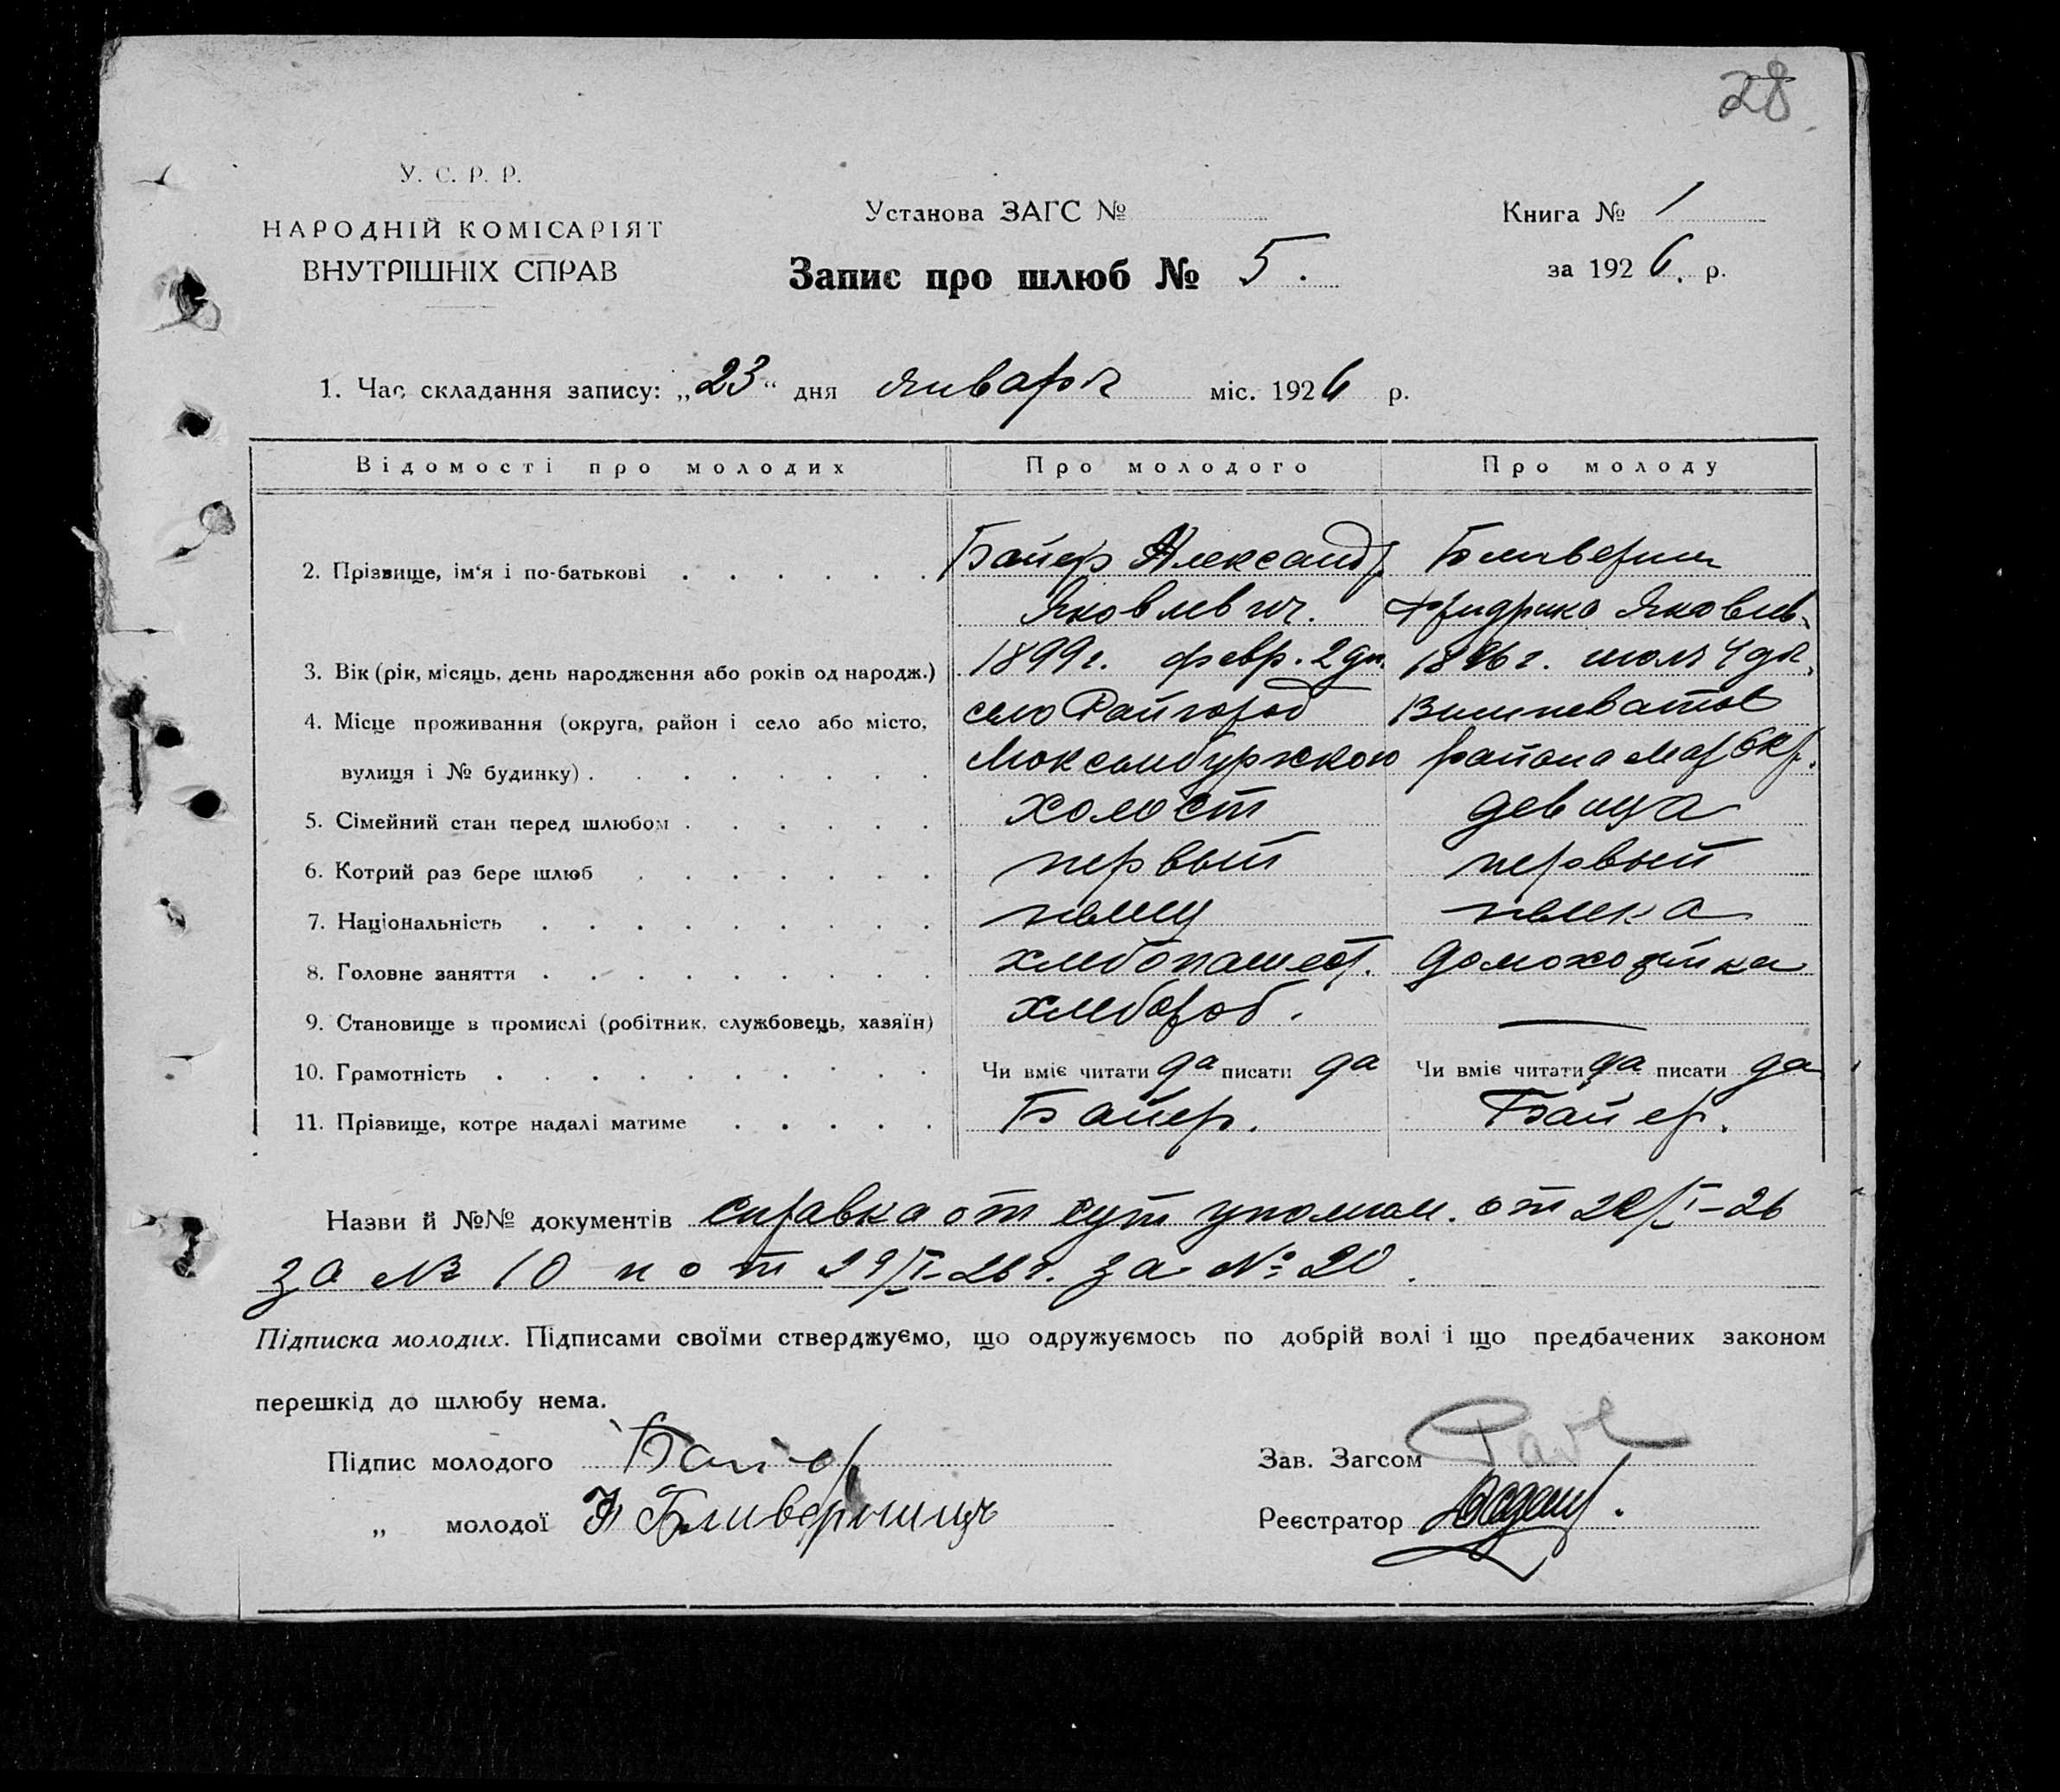 28
У. С. Р. Р.
НАРОДНІЙ КОМІСАРІЯТ
ВНУТРІШНІХ СПРАВ
Установа ЗАГС №
Запис про шлюб № 5.
Книга № 1
за 1926. р.
1. Час складання запису: „23“ дня января міс. 1926 р.
Відомості про молодих Про молодого Про молоду
2. Прізвище, ім'я і по-батькові Байер Александр
Яковлевич. Фридрика Яковлев.
3. Вік (рік, місяць, день народження або років од народж.) 1899 г. февр. 2 дн.
4. Місце проживання (округа, район і село або місто, село Райгород Вишневатое
вулиця і № будинку) Люксембуржского района Мар Окр.
5. Сімейний стан перед шлюбом холост девица
6. Котрий раз бере шлюб первый первый
7. Національність немец немка
8. Головне заняття хлебопашест. домохозяйка
9. Становище в промислі (робітник, службовець, хазяїн) хлебороб. —
10. Грамотність Чи вміє читати да писати да Чи вміє читати да писати да
11. Прізвище, котре надалі матиме Байер. Байер.
Назви й №№ документів справка от упомян. от
за № 10 и от 29/I-26 г. за № 20.
Підписка молодих. Підписами своїми стверджуємо, що одружуємось по добрій волі і що предбачених законом
перешкід до шлюбу нема.
Підпис молодого Байер
„ молодої
Зав. Загсом
Реєстратор